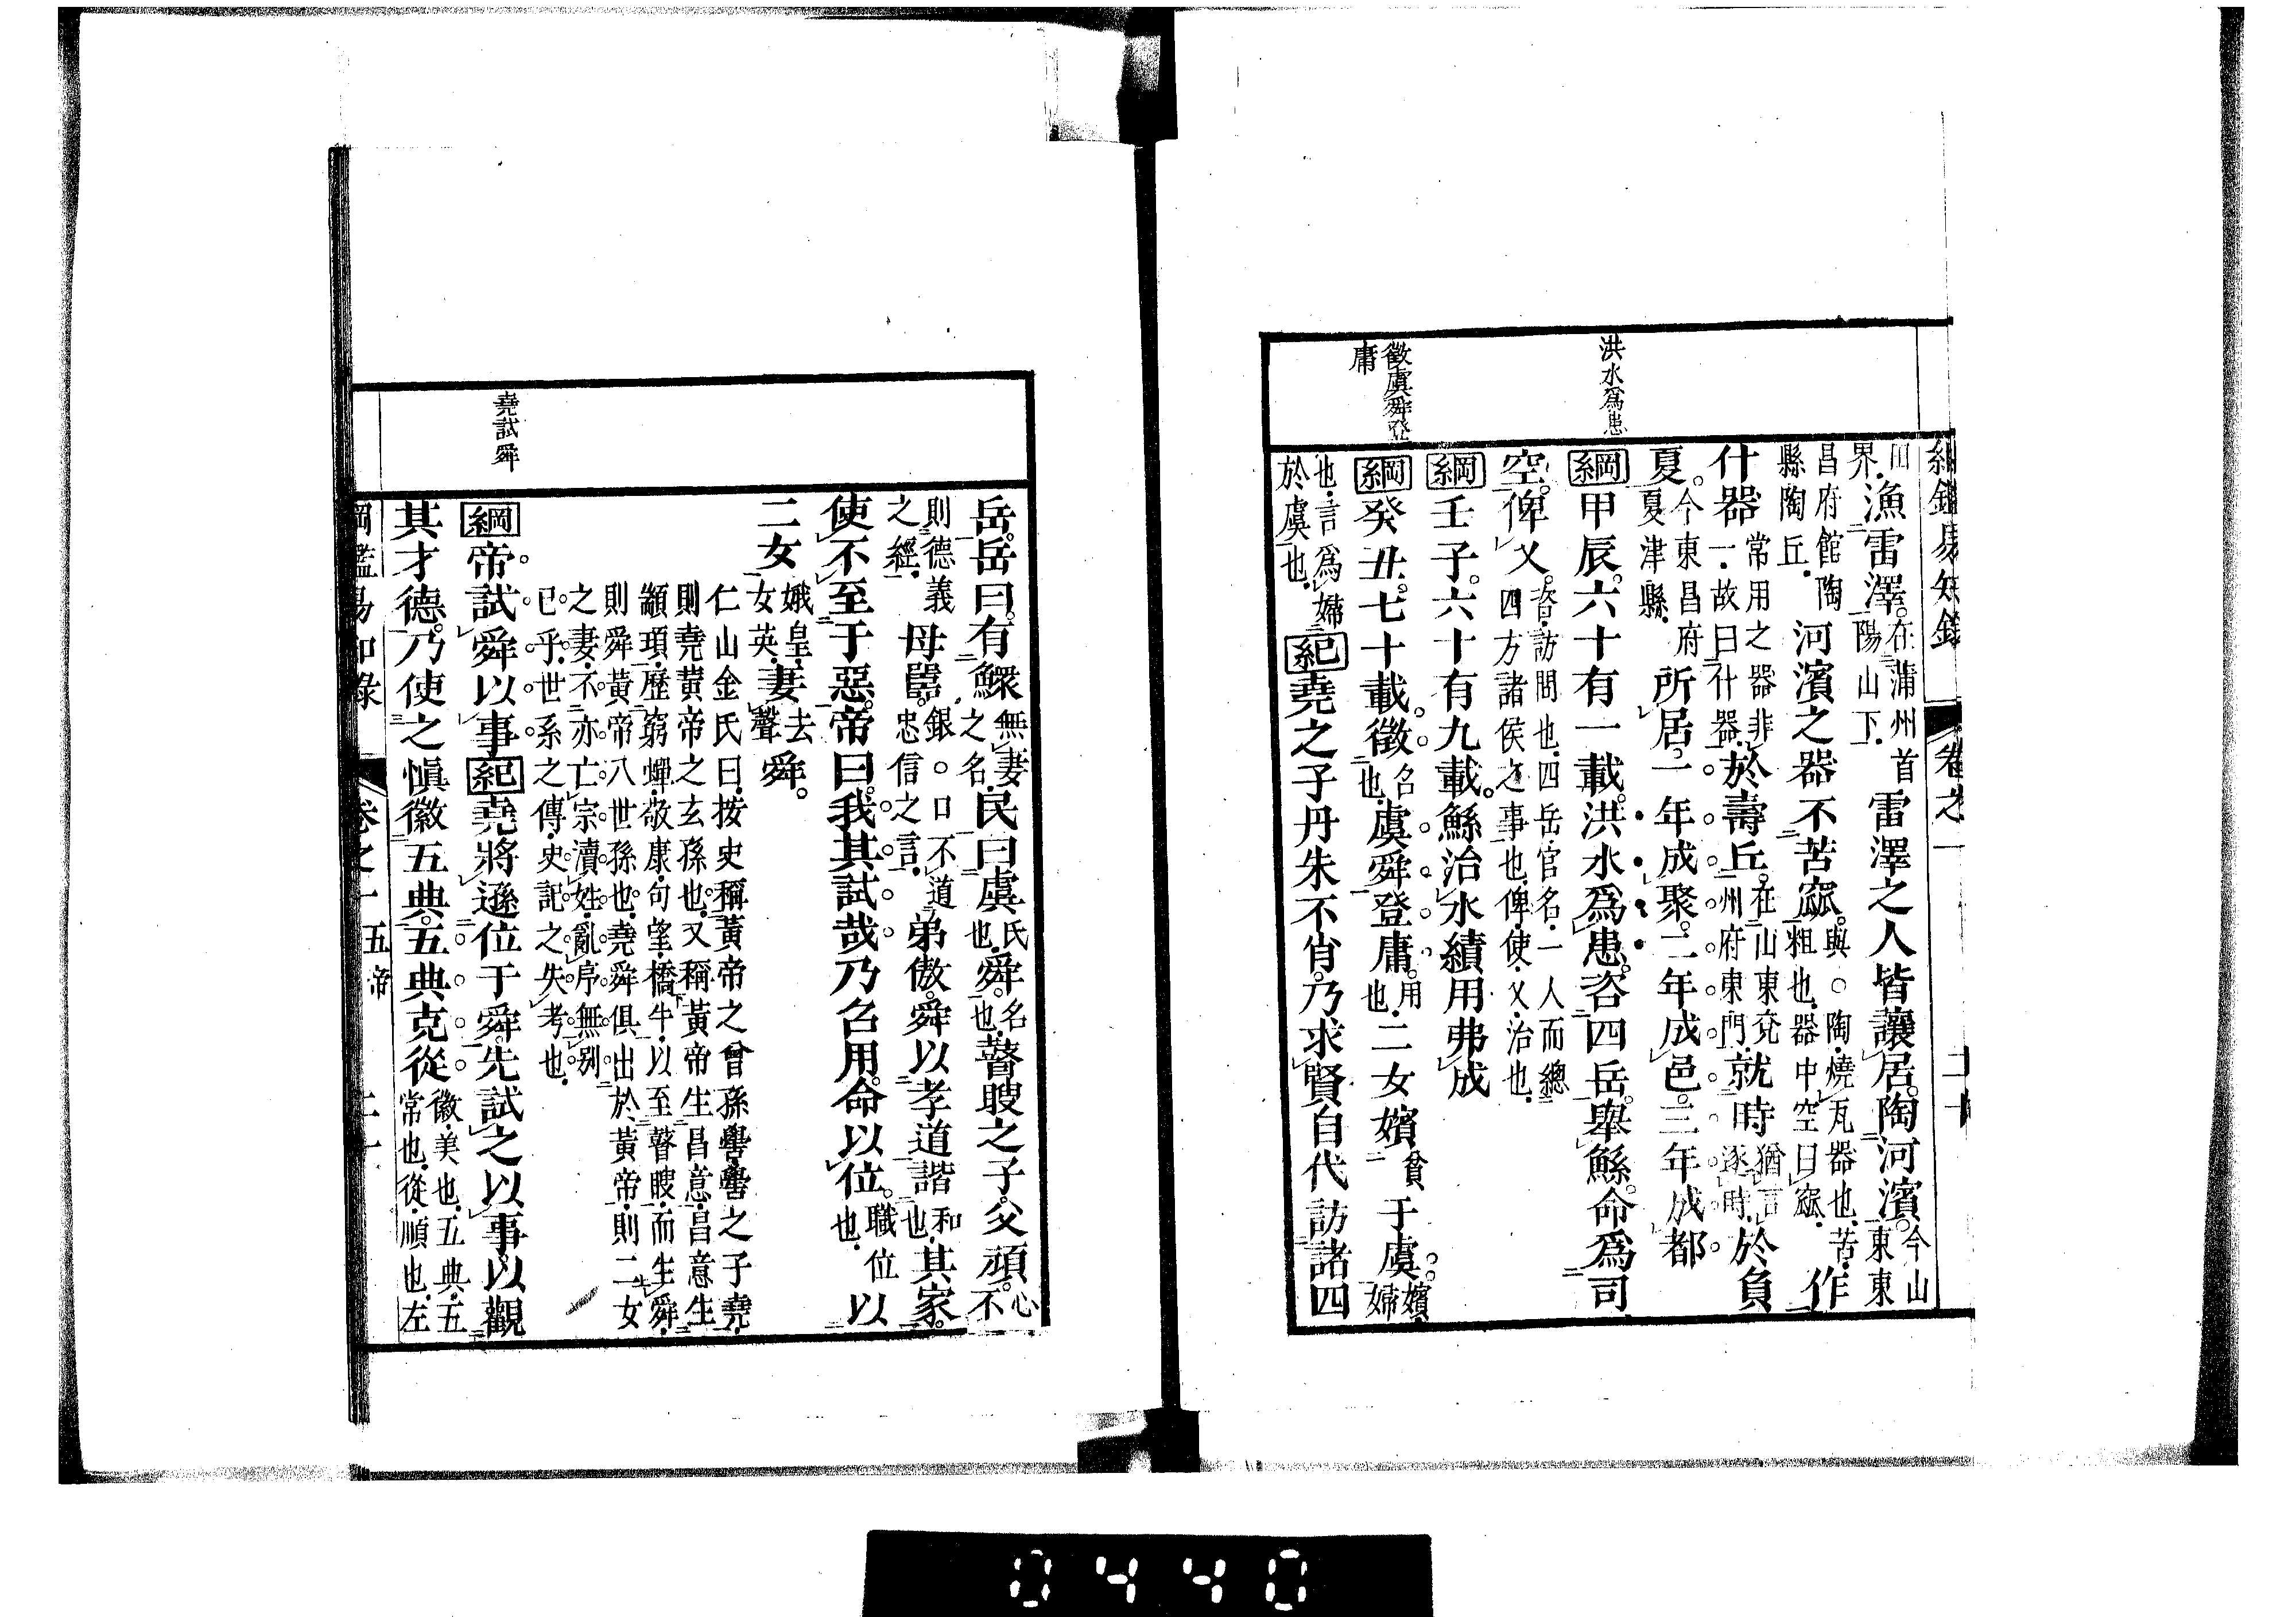 綱鑑易知錄 卷之一 二十
洪水爲患
徵虞舜登
庸
山
界漁雷澤在蒲州首陽山下雷澤之人皆讓居陶河濱今山東東
昌府館陶縣陶丘河濱之器不苦窳與○陶燒瓦器也苦粗也器中空曰窳作
什器常用之器非一故曰什器於壽丘在山東兗州府東門就時猶言逐時於負
夏今東昌府夏津縣所居一年成聚二年成邑三年成都
綱甲辰六十有一載洪水爲患咨四岳舉鯀命爲司
空俾乂咨訪問也四岳官名一人而總四方諸侯之事也俾使乂治也
綱壬子六十有九載鯀治水績用弗成
綱癸丑七十載徵召也虞舜登庸用也二女嬪貧于虞嬪婦
也言爲婦於虞也紀堯之子丹朱不肖乃求賢自代訪諸四
堯試舜
岳岳曰有鰥無妻之名民曰虞氏也舜名也瞽瞍之子父頑心不
則德義之經母嚚銀○口不道忠信之言弟傲舜以孝道諧和也其家
使不至于惡帝曰我其試哉乃召用命以位職位也以
二女娥皇女英妻去聲舜
仁山金氏曰按史稱黃帝之曾孫嚳嚳之子堯
則堯黃帝之玄孫也又稱黃帝生昌意昌意生
顓頊歷窮蟬敬康句望橋牛以至瞽瞍而生舜
則舜黃帝八世孫也堯舜俱出於黃帝則二女
之妻不亦亡宗瀆姓亂序無別
已乎世系之傳史記之失考也
綱帝試舜以事紀堯將遜位于舜先試之以事以觀
其才德乃使之愼徽五典五典克從徽美也五典五常也從順也左
綱鑑易知錄 卷之一 五帝